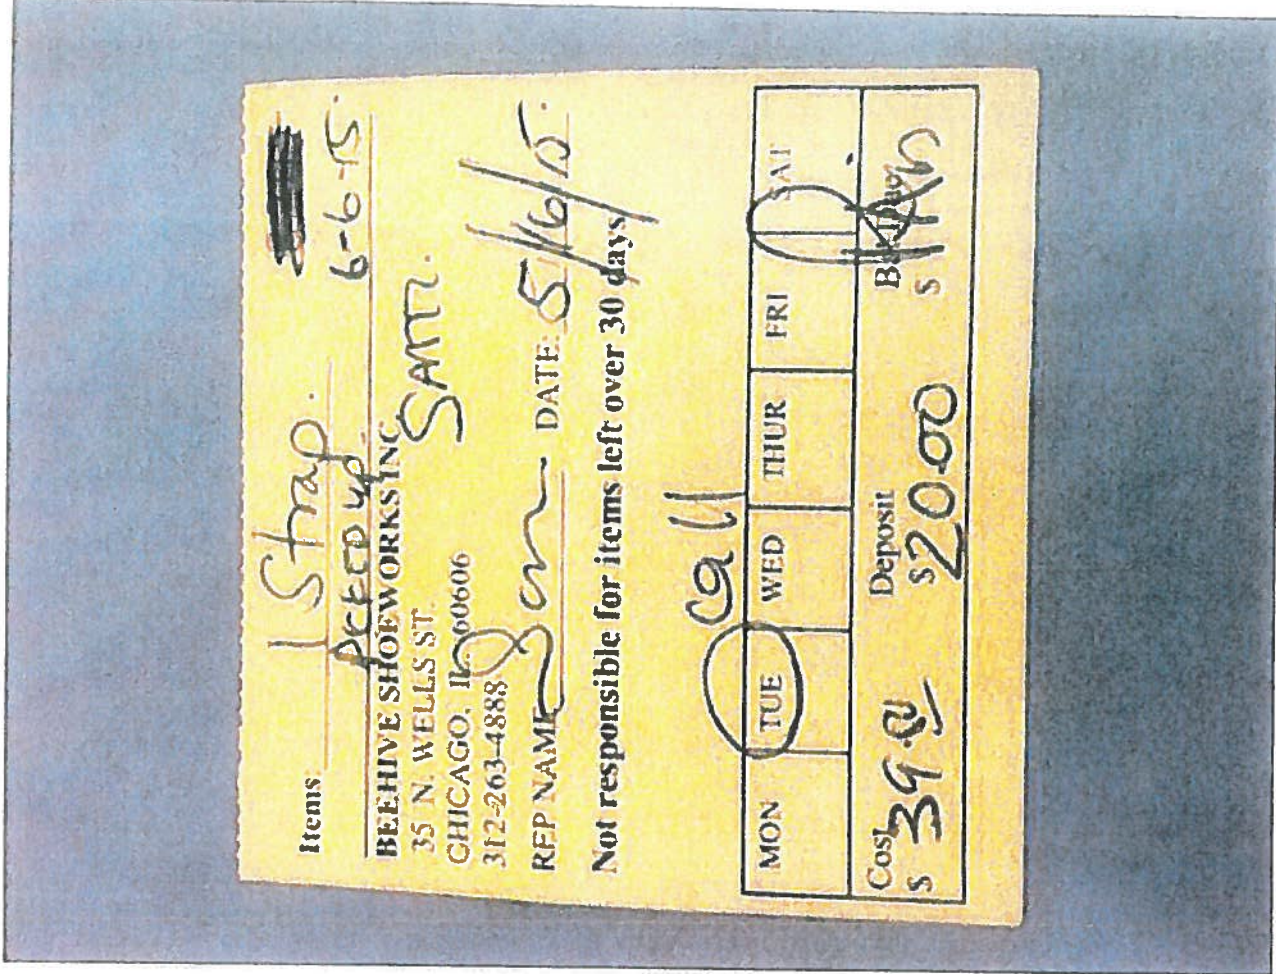 Items 1 Strap.
PICKED UP 6-6-15.
BEEHIVE SHOEWORKS INC
35 N. WELLS ST. SAM.
CHICAGO, IL 60606
312-263-4888
REP NAME DATE: 5/16/15.
Not responsible for items left over 30 days
call
MON TUE WED THUR FRI SAT
Cost Deposit Balance
$ 39.00 $ 20.00 $